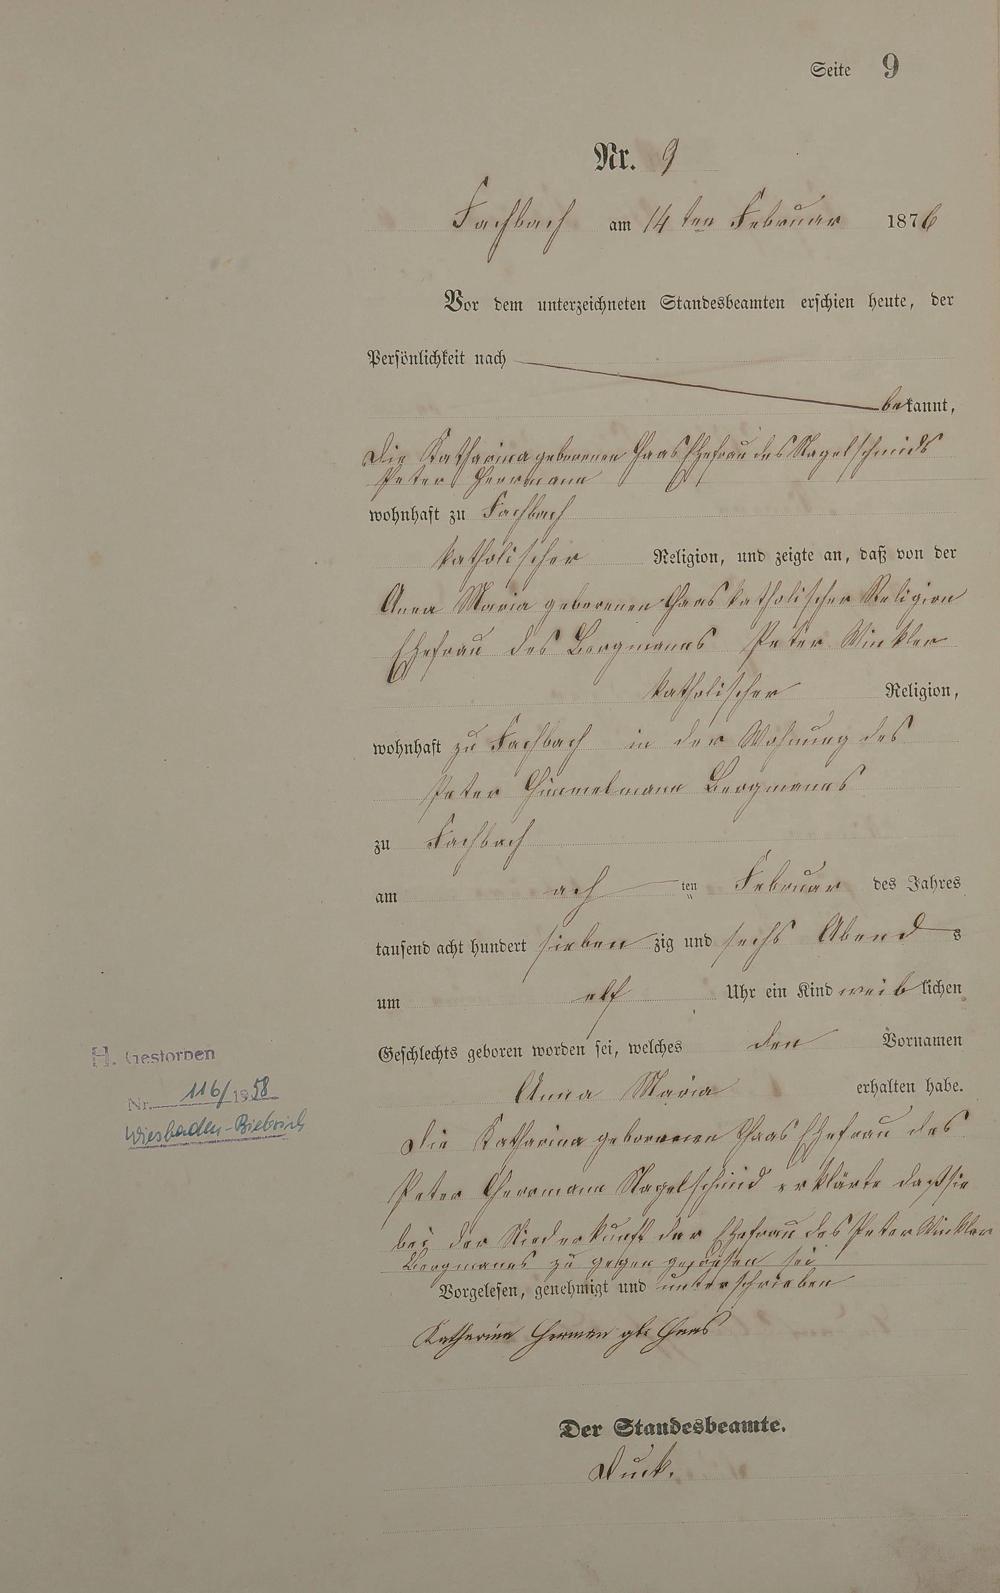 Seite 9
Nr. 9
Fachbach am 14 ten Februar 1876
Vor dem unterzeichneten Standesbeamten erschien heute, der
Persönlichkeit nach
bekannt,
Die Katharina geborenen Haas Ehefrau des Nagelschmids
Peter Herrmann
wohnhaft zu Fachbach
katholischer Religion, und zeigte an, daß von der
Anna Maria geborenen Haas katholischer Religion
Ehefrau des Bergmanns Peter Winkler
katholischer Religion,
wohnhaft zu Fachbach in der Wohnung des
Peter Himmelmann Bergmanns
zu Fachbach
am ach ten Februar des Jahres
tausend acht hundert sieben zig und sechs Abend s
um elf Uhr ein Kind weib lichen
Geschlechts geboren worden sei, welches den Vornamen
Anna Maria erhalten habe.
Die Katharina geborenen Haas Ehefrau des
Peter Herrmann Nagelschmid erklärte daß sie
bei der Niederkunft der Ehefrau des Peter Winkler
Bergmanns zu gegen gewesen sei
Vorgelesen, genehmigt und unterschrieben
Katharina Herman gb: Haas
Der Standesbeamte.
Duck.
H. Gestorben
Nr. 116/1958
Wiesbaden-Biebrich